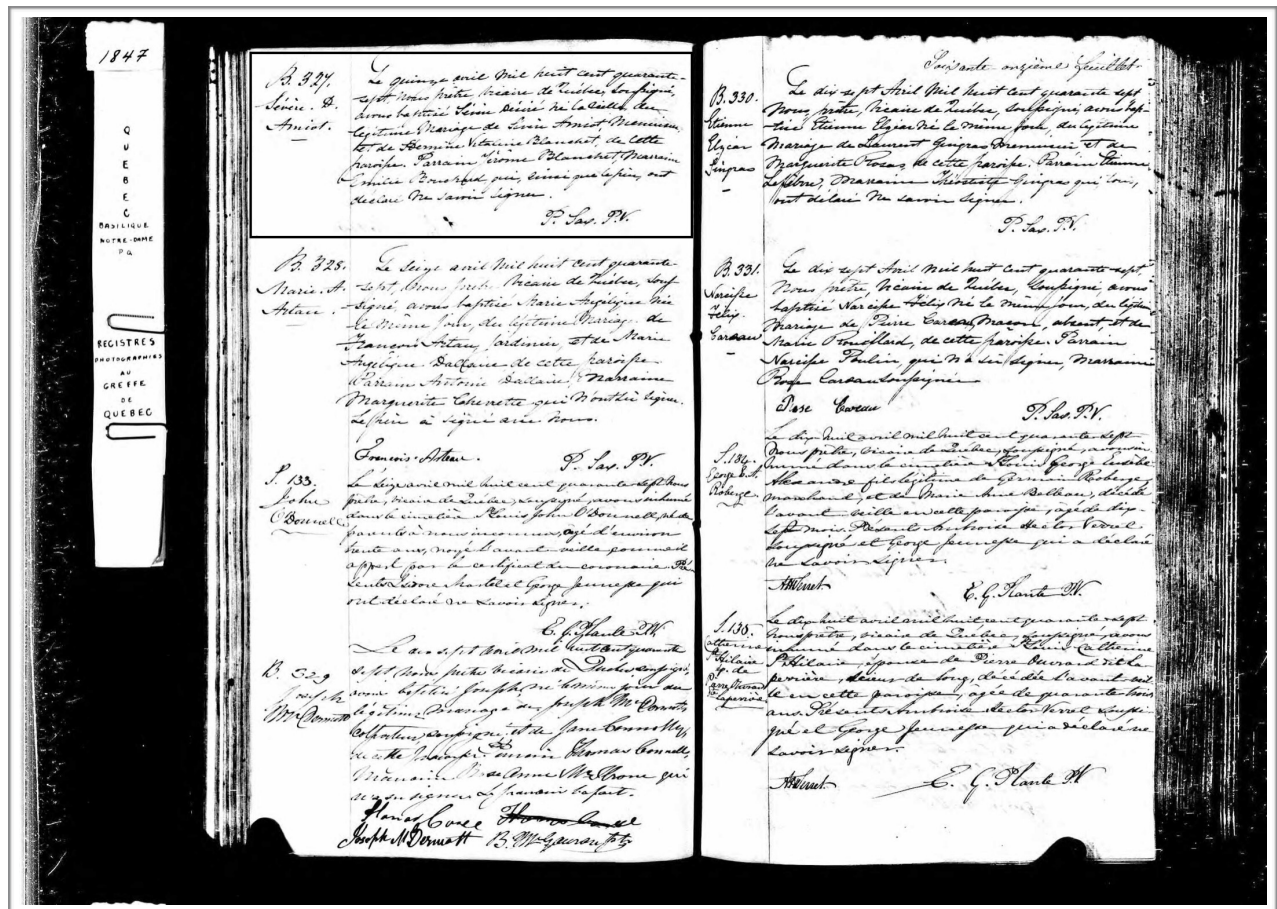 1847
QUEBEC
BASILIQUE
NOTRE-DAME
P Q
REGISTRES
PHOTOGRAPHIES
AU
GREFFE
DE
QUEBEC
B. 327.
Sévère . D.
Amiot.
Le quinze avril mil huit cent quarante-
sept, nous prêtre, vicaire de Québec, soussigné,
avons baptisé Sévère Désiré né la veille du
légitime mariage de Sévère Amiot Menuisier,
et de Herméine Vitaline Blanchet, de cette
paroisse. Parrain Jérome Blanchet, Marraine
Emilie Bouchard qui, ainsi que le père, ont
déclaré ne savoir signer.
P. Sax. P.V.
B. 328.
Marie. A.
Artau .
Le seize avril mil huit cent quarante
sept, nous prêtre, vicaire de Québec, sous
signé, avons baptisé Marie Angélique née
le même jour, du légitime mariage de
François Artau, jardinier, et de Marie
Angélique Dallaire de cette paroisse.
Parrain Antoine Dallaire, Marraine
Marguerite Chevrette qui n'ont su signer.
Le père a signé avec nous.
François Arteau. P. Sax. P.V.
S. 133.
John
O'Donnell
Le seize avril mil huit cent quarante sept nous
prêtre, vicaire de Québec, soussigné, avons inhumé
dans le cimetière St Louis John O'Donnell, né de
parents à nous inconnus, agé d'environ
trente ans, noyé l'avant-veille comme il
appert par le certificat du coronaire. Pré
sents Isidore Martel et George Jeunesse qui
ont déclaré ne savoir signer.
E. G. Plante P.V.
B. 329
Joseph
McDermott
Le dix sept avril mil huit cent quarante
sept nous prêtre vicaire de Québec soussigné,
avons baptisé Joseph né le même jour du
légitime mariage de Joseph McDermott,
colporteur, soussigné, et de Jane Connolly,
de cette paroisse. Parrain Thomas Connell,
Marraine Rose Anne McKrone qui
n'a su signer. Le parrain
Joseph McDermott B. McGauran Ptr
Soixante onzième feuillet
B. 330.
Etienne
Elzéar
Gingras
Le dix sept Avril mil huit cent quarante sept
Nous, prêtre, vicaire de Québec, soussigné, avons bap-
-tisé Etienne Elzéar né le même jour, du légitime
Mariage de Laurent Gingras Menuisier et de
Marguerite Rosas, de cette paroisse. Parrain Etienne
Lefebvre, Marraine Théotiste Gingras qui tous,
ont déclaré ne savoir signer.
P. Sax. P.V.
B. 331.
Narcisse
Félix
Careau
Le dix sept Avril mil huit cent quarante sept,
Nous prêtre, vicaire de Québec, soussigné, avons
baptisé Narcisse Félix né le même jour, du légitime
Mariage de Pierre Careau, Maçon, absent, et de
Marie Rouillard, de cette paroisse. Parrain
Narcisse Poulin, qui n'a su signer, Marraine
Rose Careau soussignée.
Rose Careau P. Sax. P.V.
S. 134.
George E. A.
Roberge
Le dix huit avril mil huit cent quarante sept
nous prêtre, vicaire de Québec, soussigné, avons in-
humé dans le cimetière St Louis, George Eusèbe
Alexandre fils légitime de Germain Roberge,
marchand, et de Marie Anne Belleau, décédé
l'avant-veille en cette paroisse, agé de dix-
sept mois. Présents Ambroise Hector Verret
soussigné et George Jeunesse qui a déclaré
ne savoir signer.
AHVerret E. G. Plante P.V.
S. 135.
Catherine
St Hilaire
ép. de
Pierre Ouvrard
dit Laperrière
Le dix huit avril mil huit cent quarante sept
nous prêtre, vicaire de Québec, soussigné, avons
inhumé dans le cimetière St Louis, Catherine
St Hilaire, épouse de Pierre Ouvrard dit La
perrière, scieur de long, décédée l'avant veil
le en cette paroisse, agée de quarante trois
ans. Présents Ambroise Hector Verret soussi
gné et George Jeunesse qui a déclaré ne
savoir signer.
AHVerret E. G. Plante P.V.